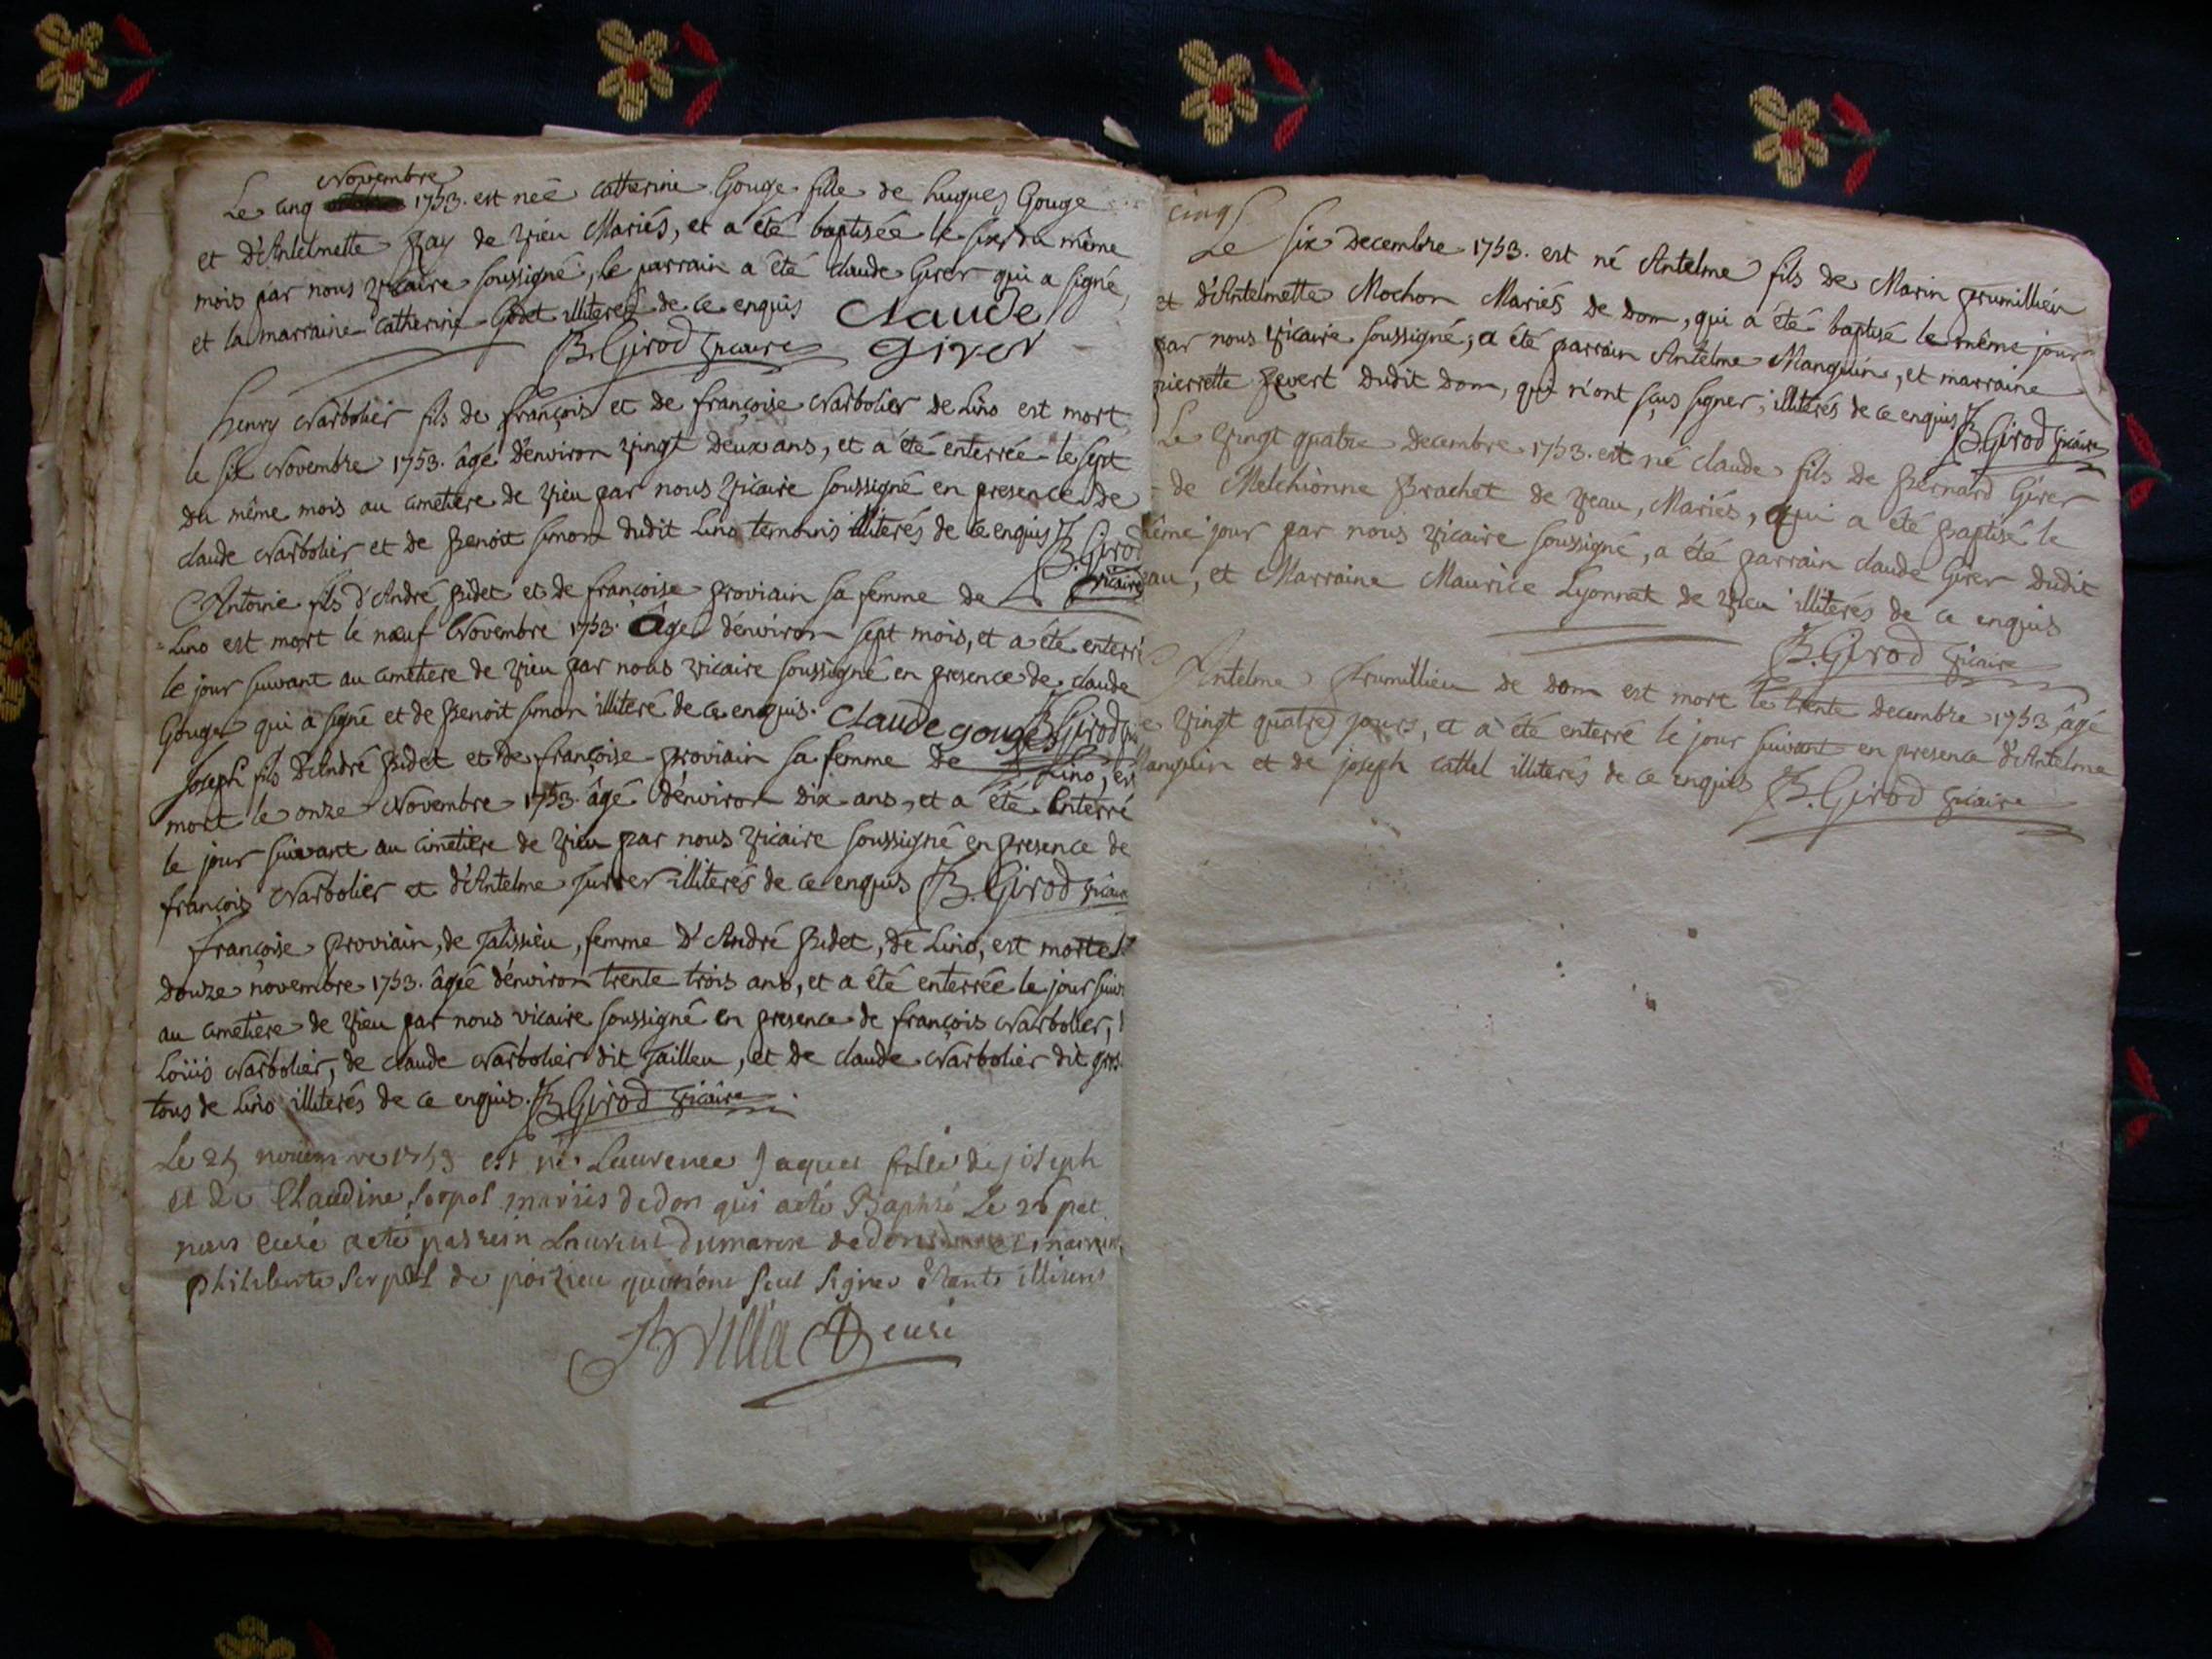 Novembre
Le cinq 1753. est née Catherine Gouge fille de hugues Gouge
et d'Antelmette Fay de Vieu Mariés, et a été baptisée le six du même
mois par nous Vicaire soussigné, le parrain a été Claude Girer qui a signé,
et la marraine Catherine Godet illiteres de ce enquis Claude
B. Girod Vicaire girer
henry Narbolier fils de françois et de françoise Narbolier de Lino est mort
le six Novembre 1753. âgé d'environ vingt deux ans, et a été enterrée le sept
du même mois au cimetiere de Vieu par nous Vicaire soussigné en presence de
claude Narbolier et de Benoit simon dudit Lino temoins illiterés de ce enquis B. Girod
Vicaire
Antoine fils d'André Bidet et de françoise proviain sa femme de
Lino est mort le nœuf Novembre 1753. Âgé d'environ sept mois, et a été enterré
le jour suivant au cimetiere de Vieu par nous vicaire soussigné en presence de claude
Gouge qui a signé et de Benoit simon illiteré de ce enquis. Claude gouge B. Girod
Joseph fils d'André Bidet et de françoise proviain sa femme de Lino, est
mort le onze Novembre 1753. âgé d'environ dix ans, et a été Enterré
le jour suivant au cimetiere de Vieu par nous Vicaire soussigné en presence de
françois Narbolier et d'Antelme Jurrer illiterés de ce enquis B. Girod Vicaire
françoise proviain, de Talissieu, femme d'André Bidet, de Lino, est morte le
douze novembre 1753. âgée d'environ trente trois ans, et a été enterrée le jour suiv
au cimetière de Vieu par nous vicaire soussigné en presence de françois Narbolier,
Loüis Narbolier, de claude Narbolier dit Tailleu, et de claude Narbolier dit gros
tous de Lino illiterés de ce enquis. B. Girod Vicaire
Le 25 1753 est né Laurence Jaques fille de joseph
et de Claudine Serpol mariés de don qui a été Baptisé Le 26 par
nous Curé a été parrein Laurent Dumarest de don et marraine
philiberte Serpol de poizieu qui n'ont seut signer étants illiteres
curé
cinq
Le six Decembre 1753. est né Antelme fils de Marin Prumillieu
et d'Antelmette Mochon Mariés de dom, qui a été baptisé le même jour
par nous Vicaire soussigné; a été parrain Antelme Manguin, et marraine
pierrette Revert dudit dom, qui n'ont sçus signer, illiterés de ce enquis B. Girod Vicaire
Le vingt quatre decembre 1753. est né claude fils de Bernard Girer
de Melchionne Brachet de Veau, Mariés, qui a été Baptisé le
même jour par nous Vicaire soussigné, a été parrain claude Girer dudit
eau, et Marraine Maurice Lyonnet de Vieu illiterés de ce enquis
B. Girod Vicaire
Antelme Prumillieu de dom est mort le trente decembre 1753 âgé
de vingt quatre jours, et a été enterré le jour suivant en presence d'Antelme
Manguin et de joseph Cattel illiterés de ce enquis B. Girod Vicaire